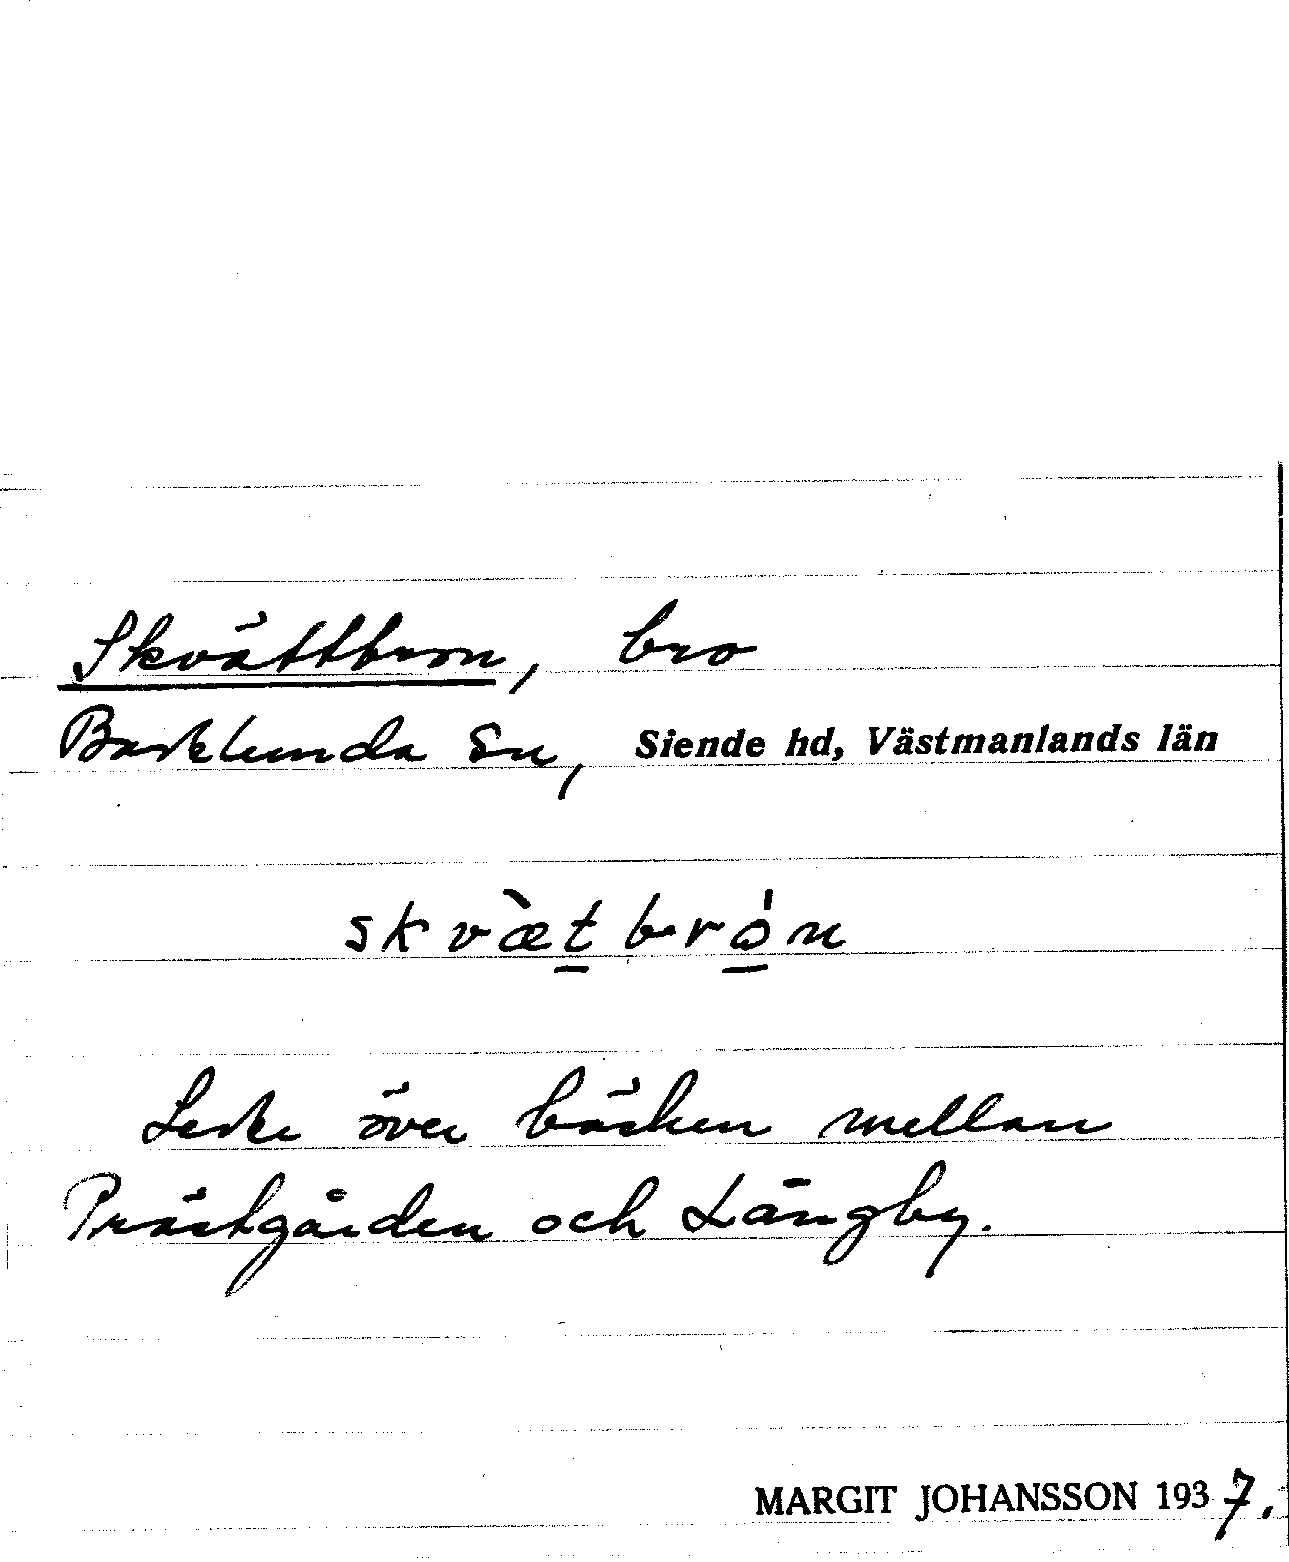 Skvättbron, bro
Barklunda Sn, Siende hd, Västmanlands län
skvæ̀t brón
Leder över bäcken mellan
Prästgården och Längby.
MARGIT JOHANSSON 1937.